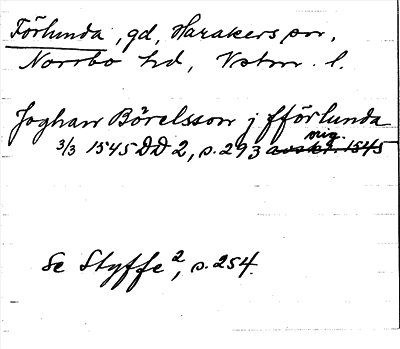 Förlunda, gd, Harakers sn,
Norrbo hd, Vstm. l.
Joghan Börelsson j fförlunda
3/3 1545 DD 2, s. 293 avskr. 1545 orig.
Se Styffe 2, s. 254.